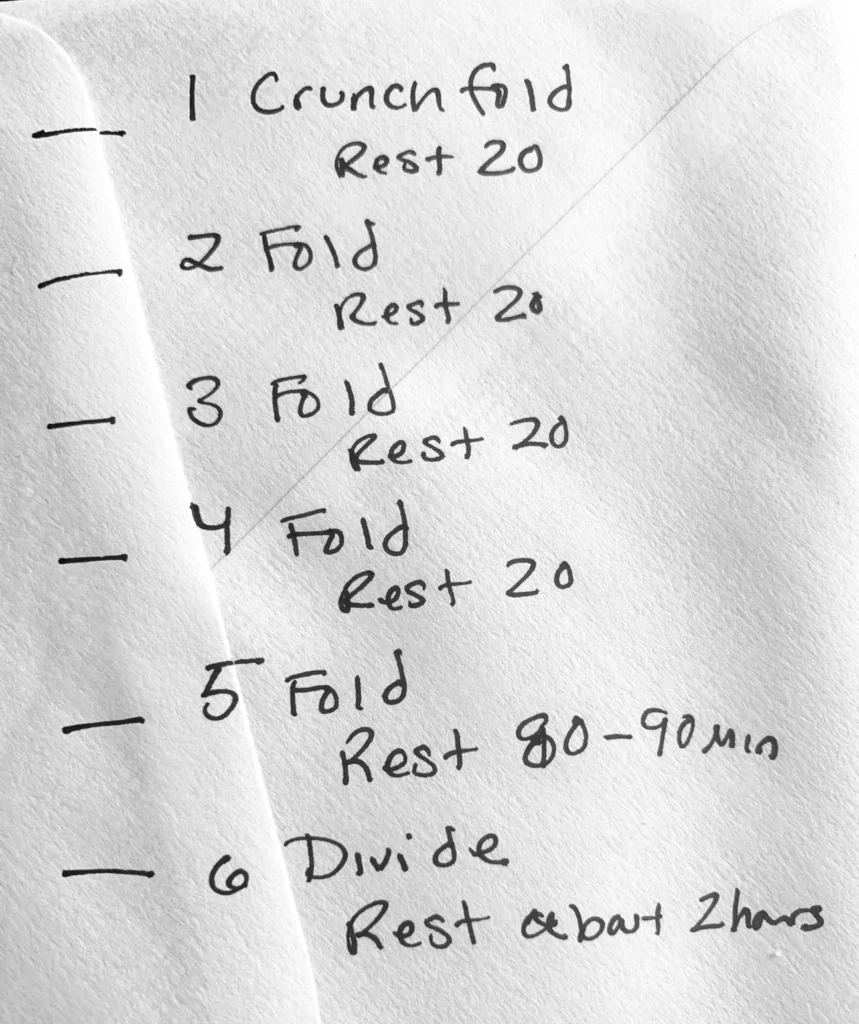 1 Crunch fold
Rest 20
2 Fold
Rest 20
3 Fold
Rest 20
4 Fold
Rest 20
5 Fold
Rest 80-90 min
6 Divide
Rest about 2 hours